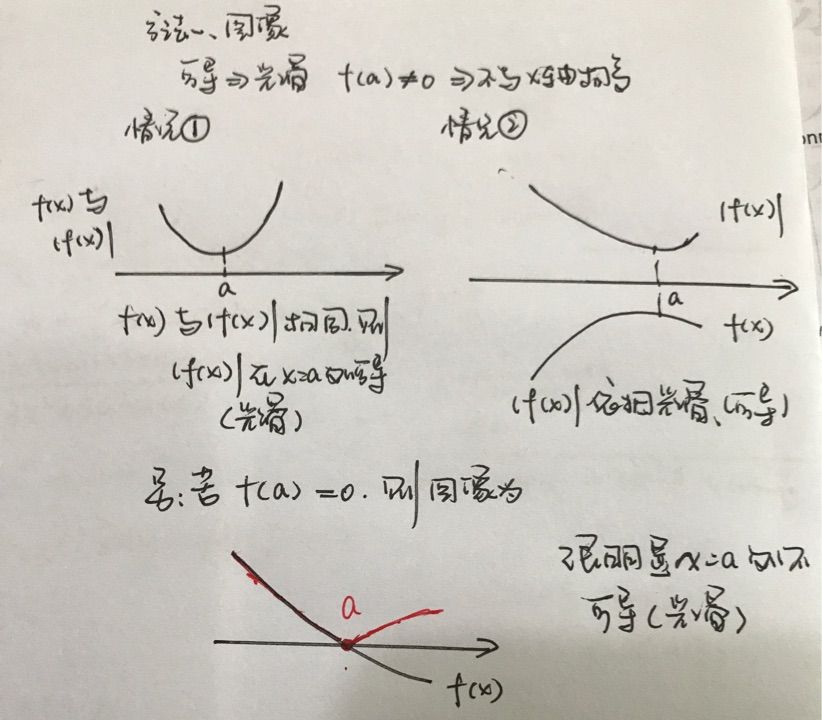 方法一、图像
可导⇒光滑 f(a)≠0 ⇒不与x轴相交
情况①
情况②
f(x)与
|f(x)|
a
f(x)与|f(x)|相同.则
|f(x)|在x=a处可导
(光滑)
|f(x)|
a
f(x)
|f(x)|依旧光滑、(可导)
另:若 f(a)=0.则图像为
a
f(x)
很明显x=a处不
可导(光滑)